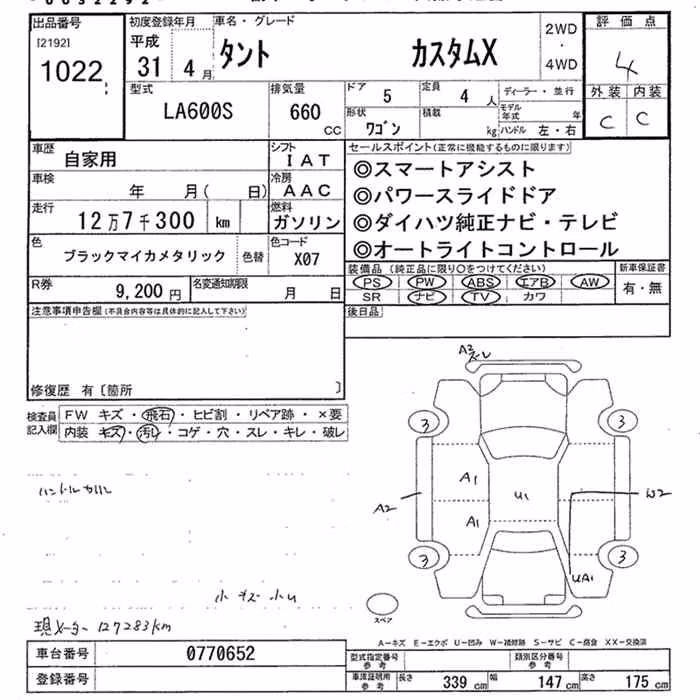 出品番号 初度登録年月 車名・グレード 評価点
[2192] 平成 2WD
1022 31年 4月 タント カスタムX ・ 4
4WD
型式 排気量 ドア 5 定員 4人 ディーラー・並行 外装 内装
LA600S 660 CC 形状 ワゴン 積載 kg モデル年式 年 C C
ハンドル 左・右
車歴 自家用 シフト IAT セールスポイント(正常に機能するものに限ります)
車検 年 月( 日) 冷房 AAC ◎スマートアシスト
走行 12万7千300 km 燃料 ガソリン ◎パワースライドドア
◎ダイハツ純正ナビ・テレビ
色 ブラックマイカメタリック 色替 色コード X07 ◎オートライトコントロール
R券 9,200円 名変通知期限 月 日 装備品(純正品に限り○をつけてください) 新車保証書
PS PW ABS エアB AW 有・無
SR ナビ TV カワ
注意事項申告欄(不具合内容等は具体的に記入して下さい) 後日品
修復歴 有〔箇所 〕
検査員記入欄 FW キズ・飛石・ヒビ割・リペア跡・×要
内装 キズ・汚レ・コゲ・穴・スレ・キレ・破レ
A2
3 3
A1
U1
A2 W2
A1
3 3
UA1
小キズ 小U
スペア
現メーター 127283km
A-キズ E-エクボ U-凹み W-補修跡 S-サビ C-腐食 XX-交換済
車台番号 0770652 型式指定番号 参考 類別区分番号 参考
登録番号 車庫証明用 参考 長さ 339cm 幅 147cm 高さ 175cm